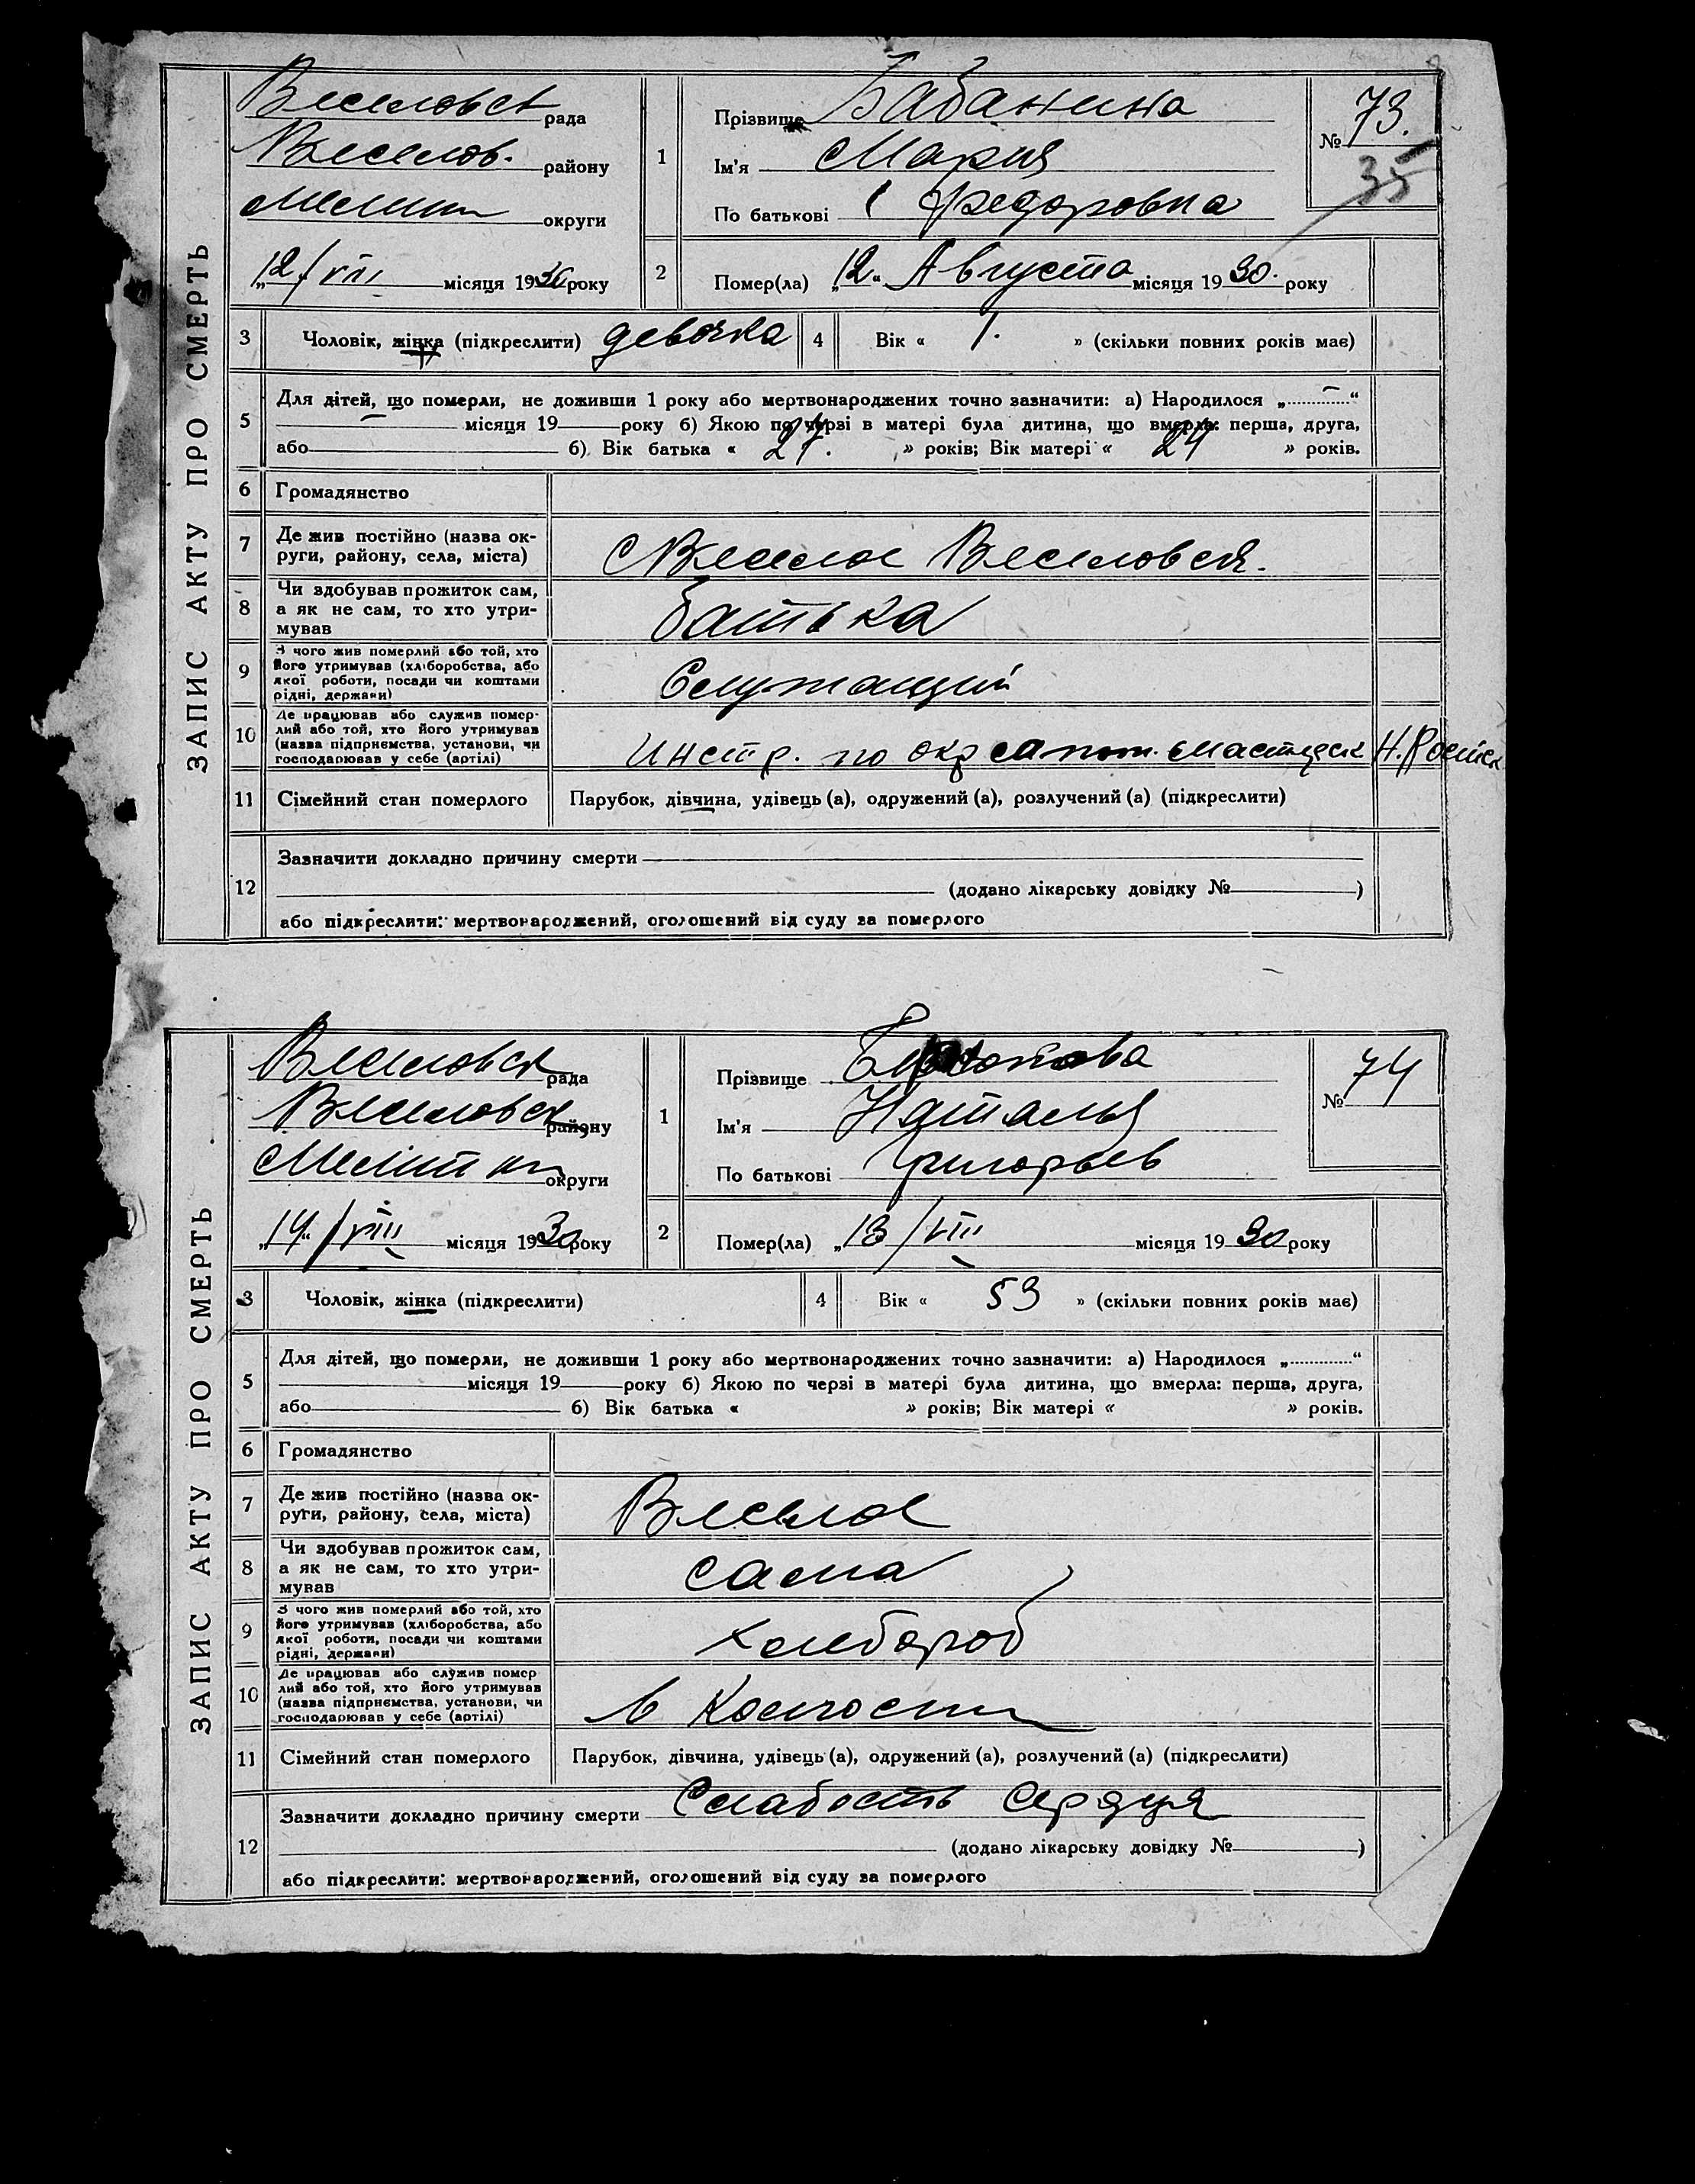 ЗАПИС АКТУ ПРО СМЕРТЬ
Веселовск рада
Веселов. району
Мелит округи
„12/VIII місяця 1930 року
1
Прізвище Бабанина
Ім'я Мария
По батькові Федоровна
№ 73.
35
2
Помер(ла) „12“ Августа місяця 1930. року
3 Чоловік, жінка (підкреслити) девочка
4 Вік « 1. » (скільки повних років має)
5 Для дітей, що померли, не доживши 1 року або мертвонароджених точно зазначити: а) Народилося „ — “
— місяця 19 року б) Якою по черзі в матері була дитина, що вмерла: перша, друга,
або б) Вік батька « 27. » років; Вік матері « 24 » років.
6 Громадянство
7 Де жив постійно (назва ок-
руги, району, села, міста)
с Веселое Веселовск.
8 Чи здобував прожиток сам,
а як не сам, то хто утри-
мував
батька
9 З чого жив померлий або той, хто
його утримував (хліборобства, або
якої роботи, посади чи коштами
рідні, держави)
Служащий
10 Де працював або служив помер-
лий або той, хто його утримував
(назва підприємства, установи, чи
господарював у себе (артілі)
Инстр. по окр
11 Сімейний стан померлого
Парубок, дівчина, удівець (а), одружений (а), розлучений (а) (підкреслити)
12 Зазначити докладно причину смерти
(додано лікарську довідку № )
або підкреслити: мертвонароджений, оголошений від суду за померлого
ЗАПИС АКТУ ПРО СМЕРТЬ
Веселовск рада
Веселовск району
Меліт округи
„14“/VIII місяця 1930 року
1
Прізвище
Ім'я Наталья
По батькові Григорьев
№ 74
2
Помер(ла) „13/VIII місяця 1930 року
3 Чоловік, жінка (підкреслити)
4 Вік « 53 » (скільки повних років має)
5 Для дітей, що померли, не доживши 1 року або мертвонароджених точно зазначити: а) Народилося „ “
місяця 19 року б) Якою по черзі в матері була дитина, що вмерла: перша, друга,
або б) Вік батька « » років; Вік матері « » років.
6 Громадянство
7 Де жив постійно (назва ок-
руги, району, села, міста)
Веселое
8 Чи здобував прожиток сам,
а як не сам, то хто утри-
мував
сама
9 З чого жив померлий або той, хто
його утримував (хліборобства, або
якої роботи, посади чи коштами
рідні, держави)
хлебороб
10 Де працював або служив помер
лий або той, хто його утримував
(назва підприємства, установи, чи
господарював у себе (артілі)
в
11 Сімейний стан померлого
Парубок, дівчина, удівець (а), одружений (а), розлучений (а) (підкреслити)
12 Зазначити докладно причину смерти Слабость сердця
(додано лікарську довідку № )
або підкреслити: мертвонароджений, оголошений від суду за померлого